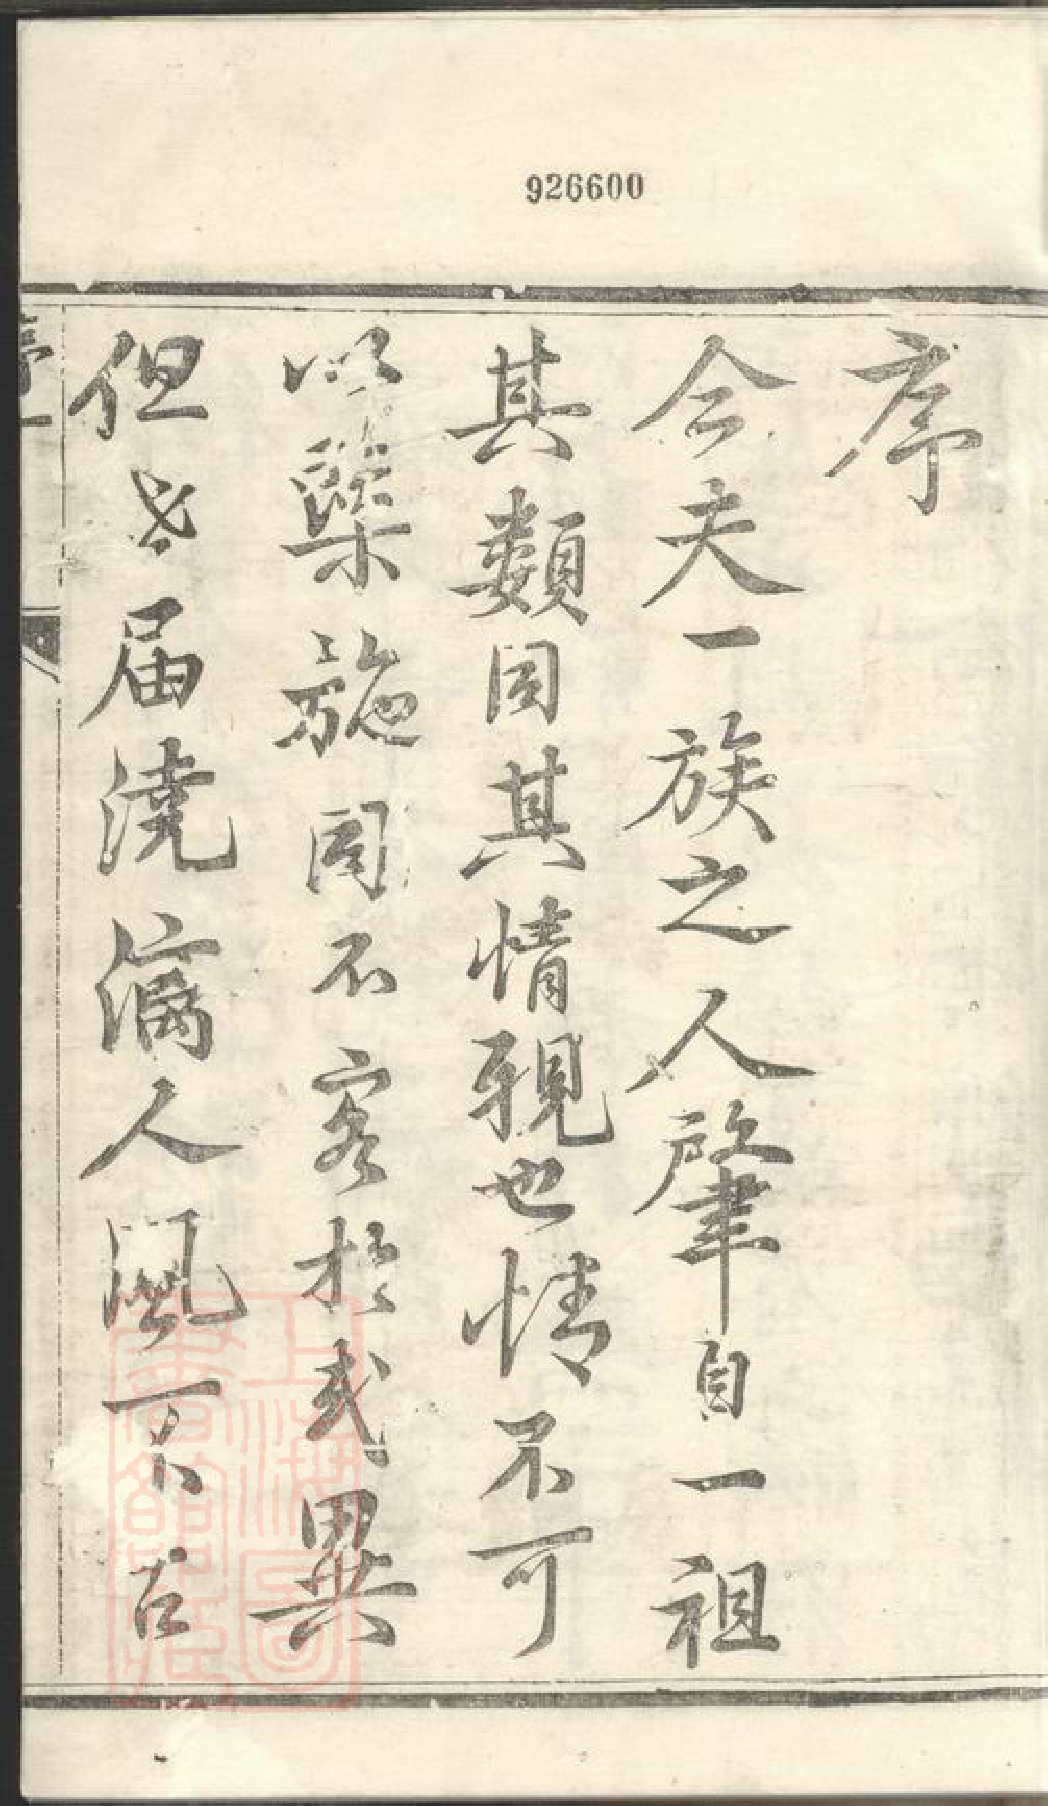 926600
序
今夫一族之人肇自一祖
其類同其情親也情不可
以槩施固不容於或異
但世届澆漓人風不古
上海圖書館藏